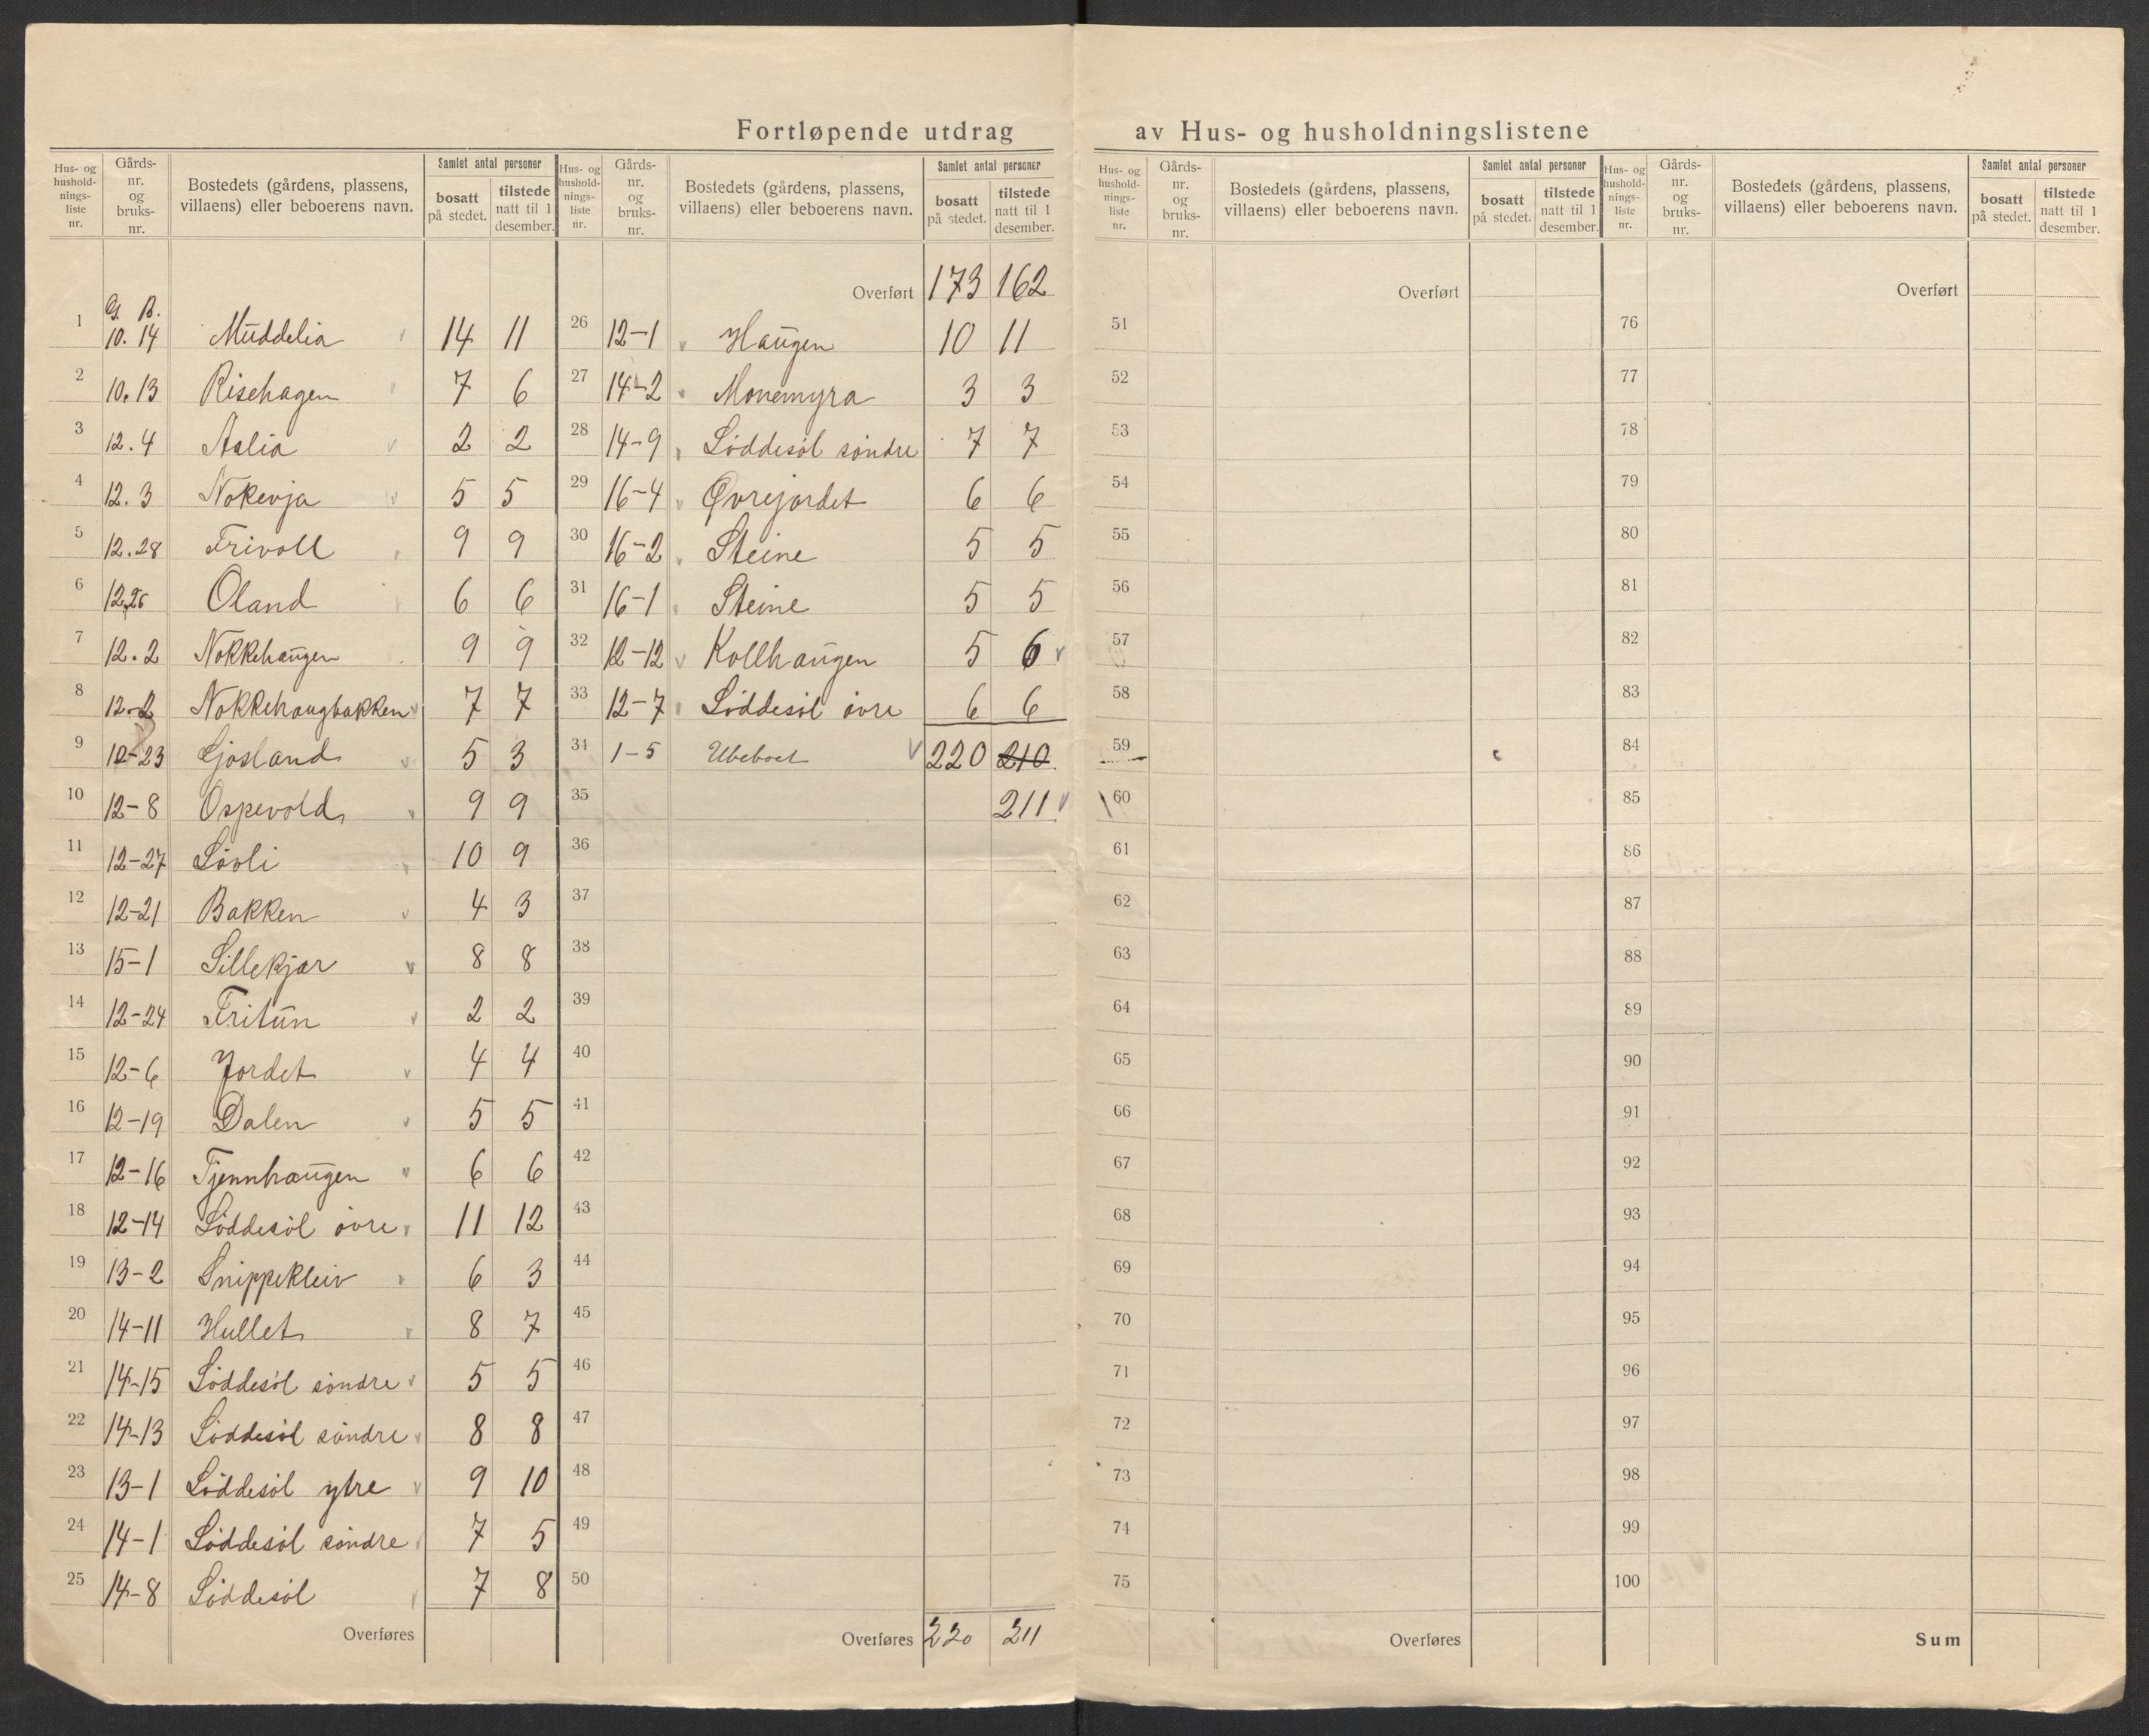 Fortløpende utdrag av Hus- og husholdningslistene
Hus- og hushold- nings- liste nr. | Gårds- nr. og bruks- nr. | Bostedets (gårdens, plassens, villaens) eller beboerens navn. | Samlet antal personer | bosatt på stedet. | tilstede natt til 1 desember.
G. B.
1 10. 14 Muddelia 14 11
2 10. 13 Risehagen 7 6
3 12. 4 Aalia 2 2
4 12. 3 Nokevja 5 5
5 12. 28 Frivoll 9 9
6 12.26 Oland 6 6
7 12. 2 Nokkehaugen 9 9
8 12.2 Nokkehaugbakken 7 7
9 12-23 Gjosland 5 3
10 12-8 Ospevold 9 9
11 12-27 Lövli 10 9
12 12-21 Bakken 4 3
13 15-1 Sillekjær 8 8
14 12-24 Fritun 2 2
15 12-6 Jordet 4 4
16 12-19 Dalen 5 5
17 12-16 Tjennhaugen 6 6
18 12-14 Löddesöl övre 11 12
19 13-2 Snippekleiv 6 3
20 14-11 Hullet 8 7
21 14-15 Löddesöl söndre 5 5
22 14-13 Löddesöl söndre 8 8
23 13-1 Löddesöl ytre 9 10
24 14-1 Löddesöl söndre 7 5
25 14-8 Löddesöl 7 8
Overføres
Hus- og hushold- nings- liste nr. | Gårds- nr. og bruks- nr. | Bostedets (gårdens, plassens, villaens) eller beboerens navn. | Samlet antal personer | bosatt på stedet. | tilstede natt til 1 desember.
Overført 173 162
26 12-1 Haugen 10 11
27 14-2 Monemyra 3 3
28 14-9 Löddesöl söndre 7 7
29 16-4 Øvrejordet 6 6
30 16-2 Steine 5 5
31 16-1 Steine 5 5
32 12-12 Kollhaugen 5 6
33 12-7 Löddesöl övre 6 6
31 1-5 Ubeboet 220 210
35 211
36
37
38
39
40
41
42
43
44
45
46
47
48
49
50
Overføres 220 211
Hus- og hushold- nings- liste nr. | Gårds- nr. og bruks- nr. | Bostedets (gårdens, plassens, villaens) eller beboerens navn. | Samlet antal personer | bosatt på stedet. | tilstede natt til 1 desember.
Overført
51
52
53
54
55
56
57
58
59
60
61
62
63
64
65
66
67
68
69
70
71
72
73
74
75
Overføres
Hus- og hushold- nings- liste nr. | Gårds- nr. og bruks- nr. | Bostedets (gårdens, plassens, villaens) eller beboerens navn. | Samlet antal personer | bosatt på stedet. | tilstede natt til 1 desember.
Overført
76
77
78
79
80
81
82
83
84
85
86
87
88
89
90
91
92
93
94
95
96
97
98
99
100
Sum